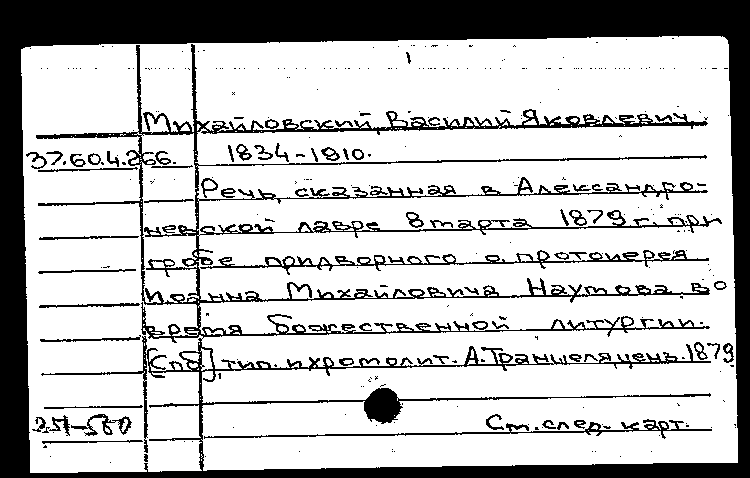 1
Михайловский, Василий Яковлевич,
37.60.4.266. 1834-1910.
Речь, сказанная в Александро-
невской лавре 8 марта 1879 г. при
гробе придворного о. протоиерея
Иоанна Михайловича Наумова, во
время божественной литургии.
[Спб], тип. и хромолит. А. Траншеля, ценз. 1879
251-580 См. след. карт.